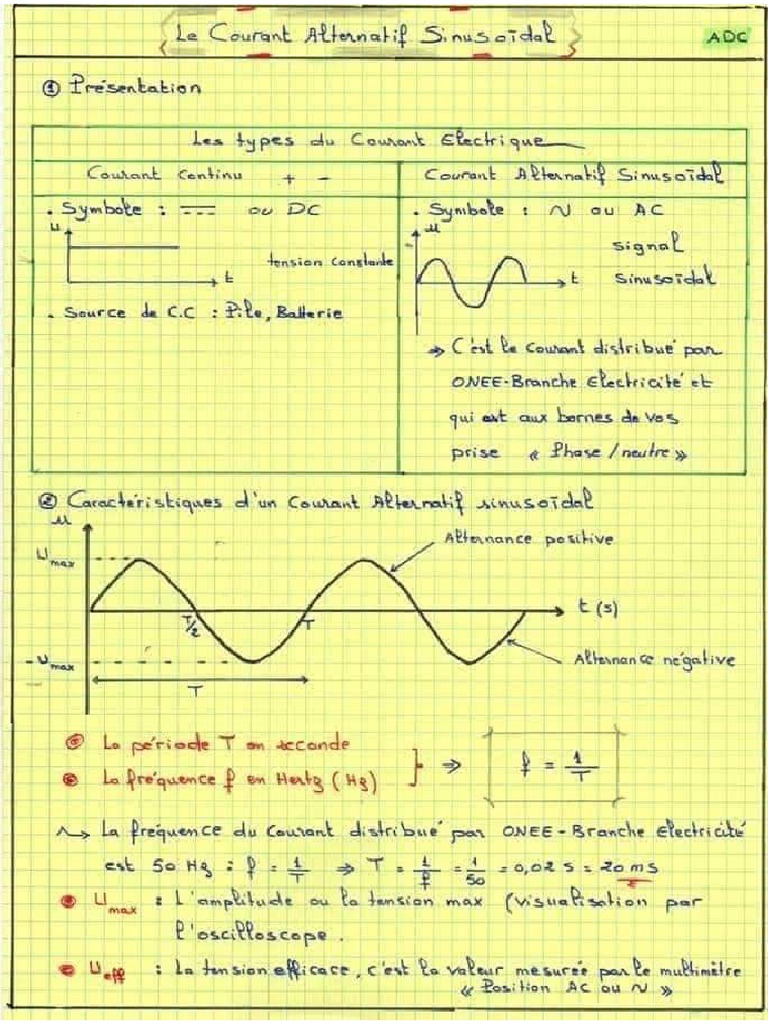 Le Courant Alternatif Sinusoïdal
ADC
① Présentation
Les types du Courant Electrique
Courant Continu + -
Courant Alternatif Sinusoïdal
. Symbole : ⎓ ou DC
. Symbole : ∿ ou AC
u
tension constante
t
u
signal
sinusoïdal
t
. Source de C.C : Pile, Batterie
⇒ C'est le Courant distribué par
ONEE-Branche Electricité et
qui est aux bornes de vos
prise « Phase / neutre »
② Caractéristiques d'un Courant Alternatif sinusoïdal
u
Umax
Alternance positive
T/2
T
t (s)
-Umax
Alternance négative
T
La période T en seconde
La fréquence f en Hertz (Hz)
} ⇒ f = 1/T
La fréquence du Courant distribué par ONEE - Branche Electricité
est 50 Hz : f = 1/T ⇒ T = 1/f = 1/50 = 0,02 s = 20 ms
Umax : L'amplitude ou la tension max (visualisation par
l'oscilloscope.
Ueff : La tension efficace, c'est la valeur mesurée par le multimètre
« Position AC ou ∿ »